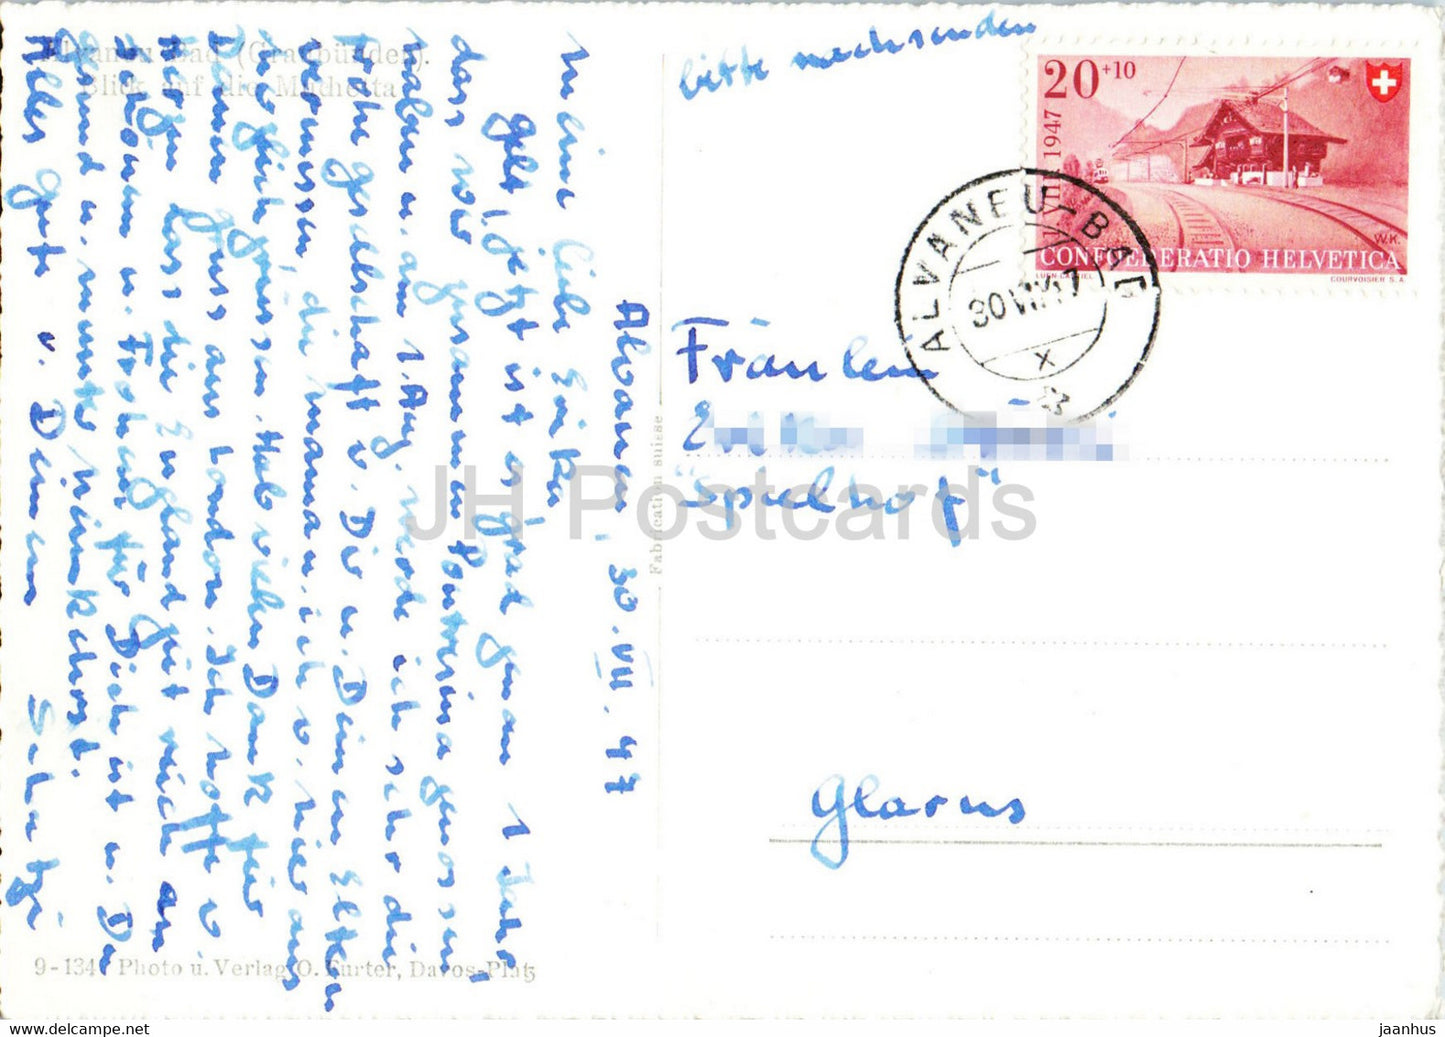 Alvaneu Bad (Graubünden).
Blick auf die Muchetta
Alvaneu, 30. VII. 47
Meine liebe Erika
Gelt, jetzt ist es grad genau 1 Jahr,
das wir zusammen Pontresina genossen
haben u. am 1. Aug. werde ich sehr die
frohe Gesellschaft v. Dir u. Deinen Eltern
vermissen, die Mama u. ich v. hier aus
herzlich grüssen. Hab vielen Dank für
Deinen Gruss aus London. Ich hoffe v.
Herzen, dass die Englandzeit reich an
Schönem u. Frohem für Dich ist u. Du
gesund u. munter heimkehrst.
Alles Gute v. Deinem
bitte nachsenden
20+10
1947
CONFOEDERATIO HELVETICA
W.K.
COURVOISIER S.A.
ALVANEU-BAD
30 VII 47
X
Fräulein
"Spielhof"
Glarus
Fabrication suisse
9-134 Photo u. Verlag O. Furter, Davos-Platz
JH Postcards
https://www.hippostcard.com
jaanhus